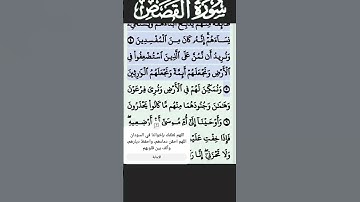 سُورَةُ القَصَصِ
نِسَاءَهُمْ إِنَّهُ كَانَ مِنَ الْمُفْسِدِينَ ٤
وَنُرِيدُ أَن نَّمُنَّ عَلَى الَّذِينَ اسْتُضْعِفُوا فِي
الْأَرْضِ وَنَجْعَلَهُمْ أَئِمَّةً وَنَجْعَلَهُمُ الْوَارِثِينَ
وَنُمَكِّنَ لَهُمْ فِي الْأَرْضِ وَنُرِيَ فِرْعَوْنَ
وَهَامَانَ وَجُنُودَهُمَا مِنْهُم مَّا كَانُوا يَحْذَرُونَ
وَأَوْحَيْنَا إِلَىٰ أُمِّ مُوسَىٰ أَنْ أَرْضِعِيهِ
فَإِذَا خِفْتِ عَلَيْهِ
وَلَا تَحْزَنِي إِنَّا
اللهم لطفك بإخواننا في السودان
اللهم احقن دماءهم واحفظ ديارهم
وألف بين قلوبهم